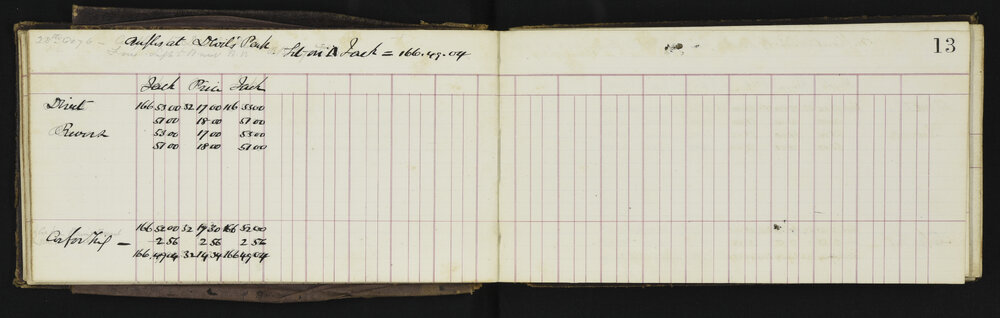 Angles at Devil's Peak
Set on Δ Jack = 166.49.04
13
Jack Price Jack
Direct 166 53 00 32 17 00 166 53 00
51 00 18 00 51 00
Revers 53 00 17 00 53 00
51 00 18 00 51 00
166 52 00 32 17 30 166 52 00
Cor for — 2 56 2 56 2 56
166 49 04 32 14 34 166 49 04